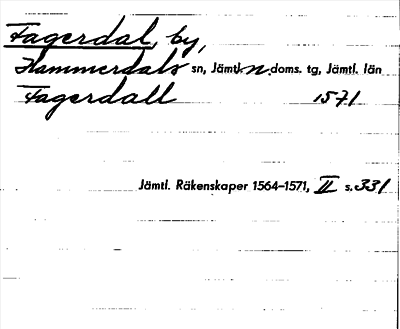 Fagerdal, by,
Hammerdals sn, Jämtl. n. doms. tg, Jämtl. län
Fagerdall 1571
Jämtl. Räkenskaper 1564–1571, II s. 331